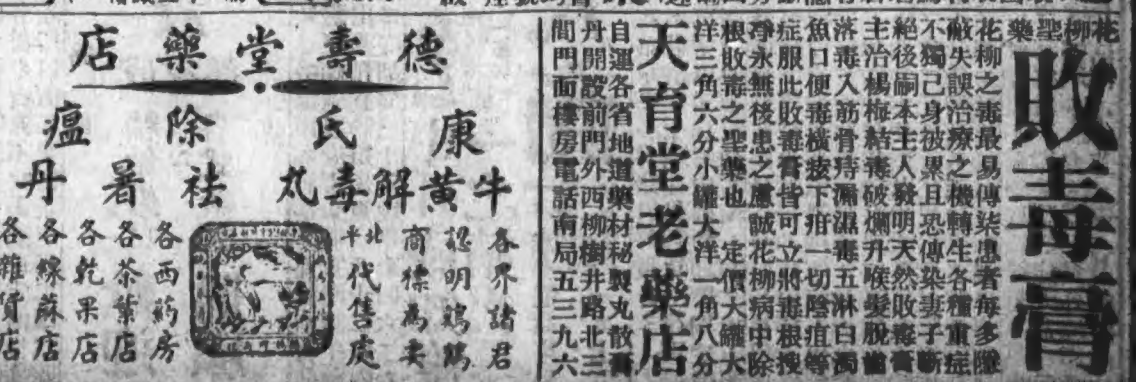 花柳聖藥
敗毒膏
花柳之毒最易傳染患者每多隱
蔽失誤治療之機轉生各種重症
不獨己身被累且恐傳染妻子斷
絕後嗣本主人發明天然敗毒膏
主治楊梅結毒破爛升喉髮脫
落毒入筋骨痔漏濕毒五淋白濁
魚口便毒橫痃下疳一切陰疽等
症服此敗毒膏皆可立將毒根搜
淨永無後患之慮誠花柳病中除
根敗毒之聖藥也 定價大罐大
洋三角六分小罐大洋一角八分
天育堂老藥店
自運各省地道藥材秘製丸散膏
丹開設前門外西柳樹井路北三
間門面樓房電話南局五三九六
德壽堂藥店
康氏除瘟
牛黃解毒丸 祛暑丹
各界諸君
認明鷄
商標為要
北平代售處
各西药房
各茶葉店
各乾果店
各線蔴店
各雜貨店